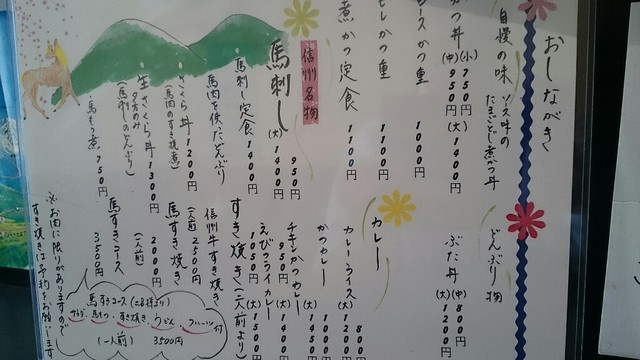 おしながき
自慢の味
ソース味の
たまごとじ煮かつ丼
かつ丼
(小) 750円
(中) 950円
(大) 1400円
ースかつ重 1000円
ヒレかつ重 1100円
煮かつ定食 1100円
信州名物
馬刺し 950円
(大) 1400円
馬刺し定食 1400円
馬肉を使ったどんぶり
さくら丼 1200円
(馬肉のすき焼煮)
生さくら丼 1300円
夕方のみ
(馬刺しのどんぶり)
馬もつ煮 750円
どんぶり物
ぶた丼
(中) 800円
(大) 1200円
カレー
カレーライス 800
(大) 1200
かつカレー 1000
(大) 1450円
チキンかつカレー
950円 (大) 1400円
えびフライカレー
1050円 (大) 1500円
すき焼き(二人前より)
信州牛すき焼き
(一人前) 2500円
馬すき焼き
(一人前) 2000円
馬すきコース 3500円
馬すきコース(二名様より)
サラダ、馬もつ、すき焼き、うどん、フルーツ付
(一人前) 3500円
※お肉に限りがありますので
すき焼きは予約をお願いします